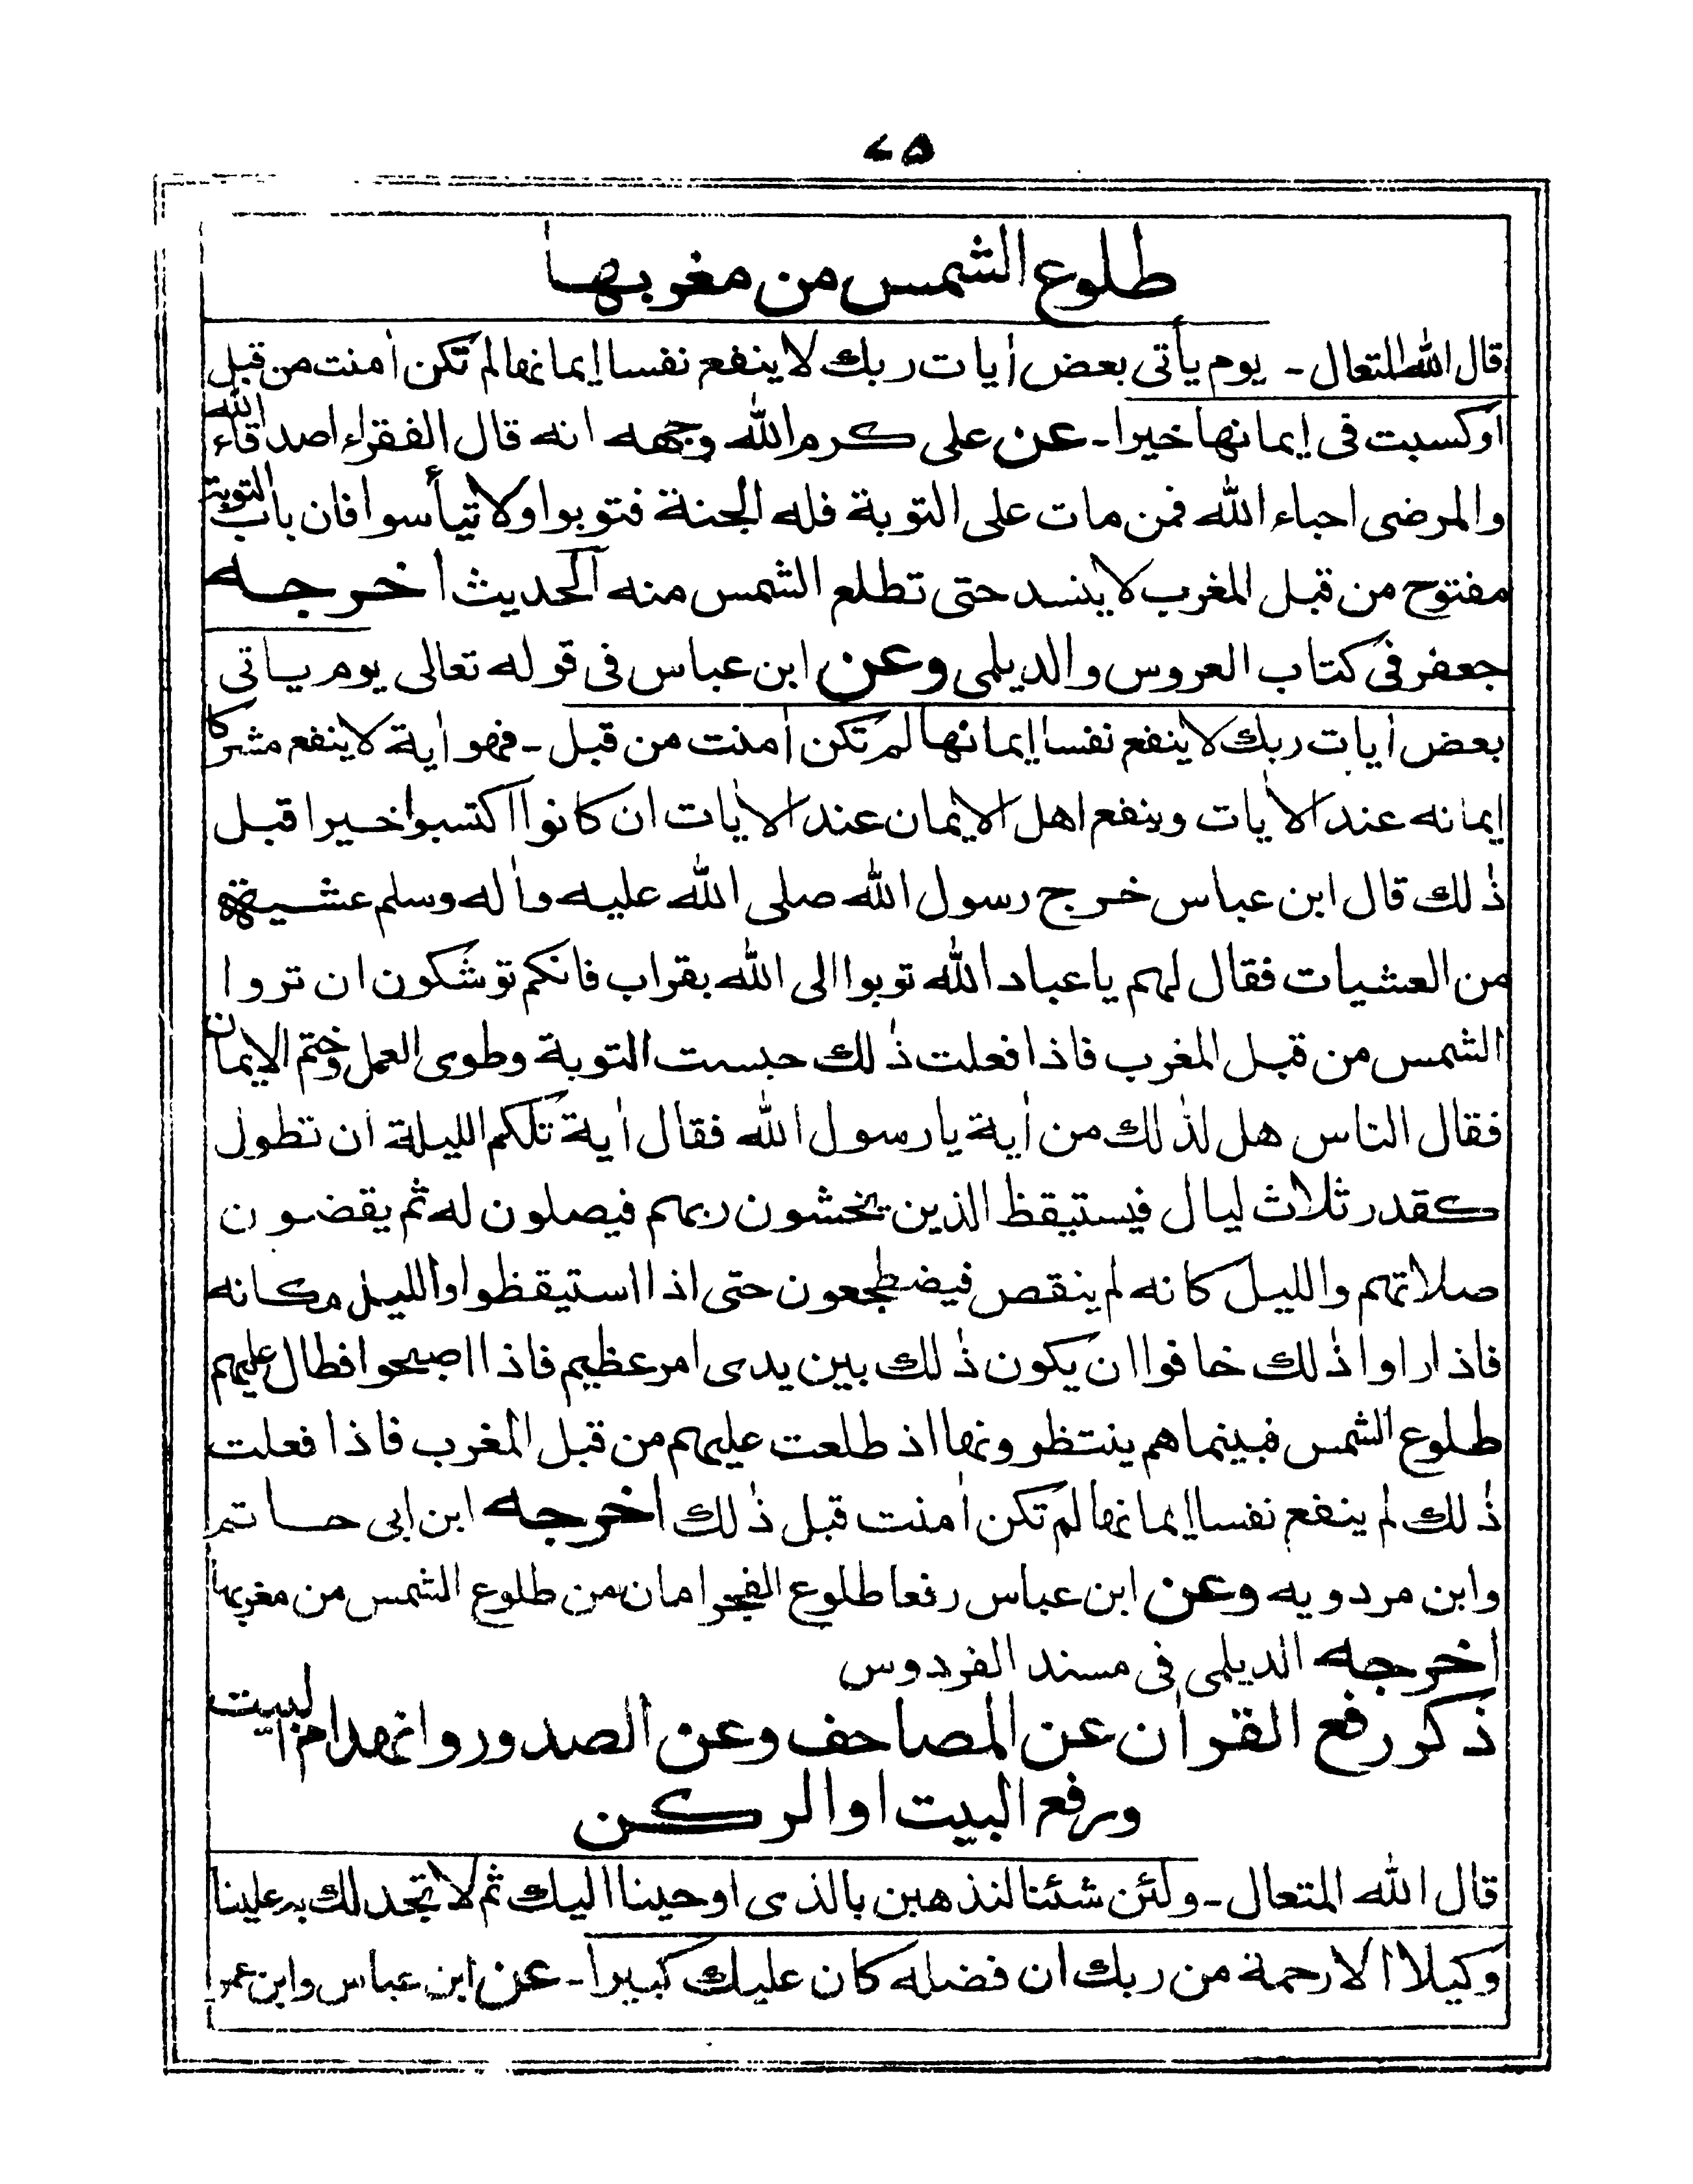 ٧٥
طلوع الشمس من مغربها
قال الله المتعال ـ يوم يأتى بعض اٰيات ربك لا ينفع نفسا إيمانها لم تكن اٰمنت من قبل
أوكسبت فى إيمانها خيرا ـ عن على كرم الله وجهه انه قال الفقراء اصدقاء الله
والمرضى احباء الله فمن مات على التوبة فله الجنة فتوبوا ولا تيأسوا فان باب التوبة
مفتوح من قبل المغرب لا ينسد حتى تطلع الشمس منه الحديث اخرجه
جعفر فى كتاب العروس والديلمى وعن ابن عباس فى قوله تعالى يوم ياتى
بعض اٰيات ربك لا ينفع نفسا إيمانها لم تكن اٰمنت من قبل ـ فهو اٰية لا ينفع مشركا
إيمانه عند الاٰيات وينفع اهل الايمان عند الاٰيات ان كانوا اكتسبوا خيرا قبل
ذٰلك قال ابن عباس خرج رسول الله صلى الله عليه واٰله وسلم عشية
من العشيات فقال لهم يا عباد الله توبوا الى الله بقراب فانكم توشكون ان تروا
الشمس من قبل المغرب فاذا فعلت ذٰلك حبست التوبة وطوى العمل وختم الايمان
فقال الناس هل لذٰلك من اٰية يا رسول الله فقال اٰية تلكم الليلة ان تطول
كقدر ثلاث ليال فيستيقظ الذين يخشون ربهم فيصلون له ثم يقضون
صلاتهم والليل كانه لم ينقص فيضطجعون حتى اذا استيقظوا والليل مكانه
فاذا راوا ذٰلك خافوا ان يكون ذٰلك بين يدى امر عظيم فاذا اصبحوا فطال عليهم
طلوع الشمس فبينما هم ينتظرونها اذ طلعت عليهم من قبل المغرب فاذا فعلت
ذٰلك لم ينفع نفسا إيمانها لم تكن اٰمنت قبل ذٰلك اخرجه ابن ابى حاتم
وابن مردويه وعن ابن عباس رفعا طلوع الفجر امان من طلوع الشمس من مغربها
اخرجه الديلمى فى مسند الفردوس
ذكر رفع القراٰن عن المصاحف وعن الصدور وانهدام البيت
ورفع البيت او الركن
قال الله المتعال ـ ولئن شئنا لنذهبن بالذى اوحينا اليك ثم لا تجد لك به علينا
وكيلا الا رحمة من ربك ان فضله كان عليك كبيرا ـ عن ابن عباس وابن عمر